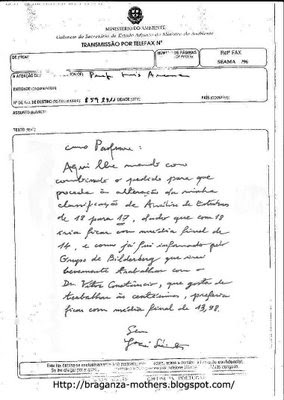 MINISTÉRIO DO AMBIENTE
Gabinete do Secretário de Estado Adjunto do Ministro do Ambiente
TRANSMISSÃO POR TELEFAX Nº
DE/FROM:
Nº DE PÁGINAS
REF FAX
SEAMA /96
A ATENÇÃO DE/
Prof.
ENTIDADE
Nº FAX DE DESTINO
PAÍS
ASSUNTO
TEXTO
Caro Professor:
Aqui lhe mando como
combinado o pedido para que
proceda à alteração da minha
classificação de Análise de Estruturas
de 18 para 17, dado que com 18
iria ficar com média final de
14, e como já fui informado pelo
Grupo de Bilderberg que irei
brevemente trabalhar com o
Dr. Vitor Constâncio, que gosta de
trabalhar às centésimas, preferia
ficar com média final de 13,98.
Seu
http://braganza-mothers.blogspot.com/